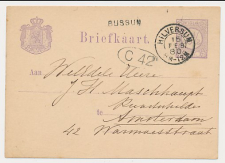 BUSSUM
Briefkaart.
HILVERSUM
15
FEB
80
C 42
AAN
Weledele Heer
J H Maschhaupt
te Amsterdam
42 Warmoesstraat